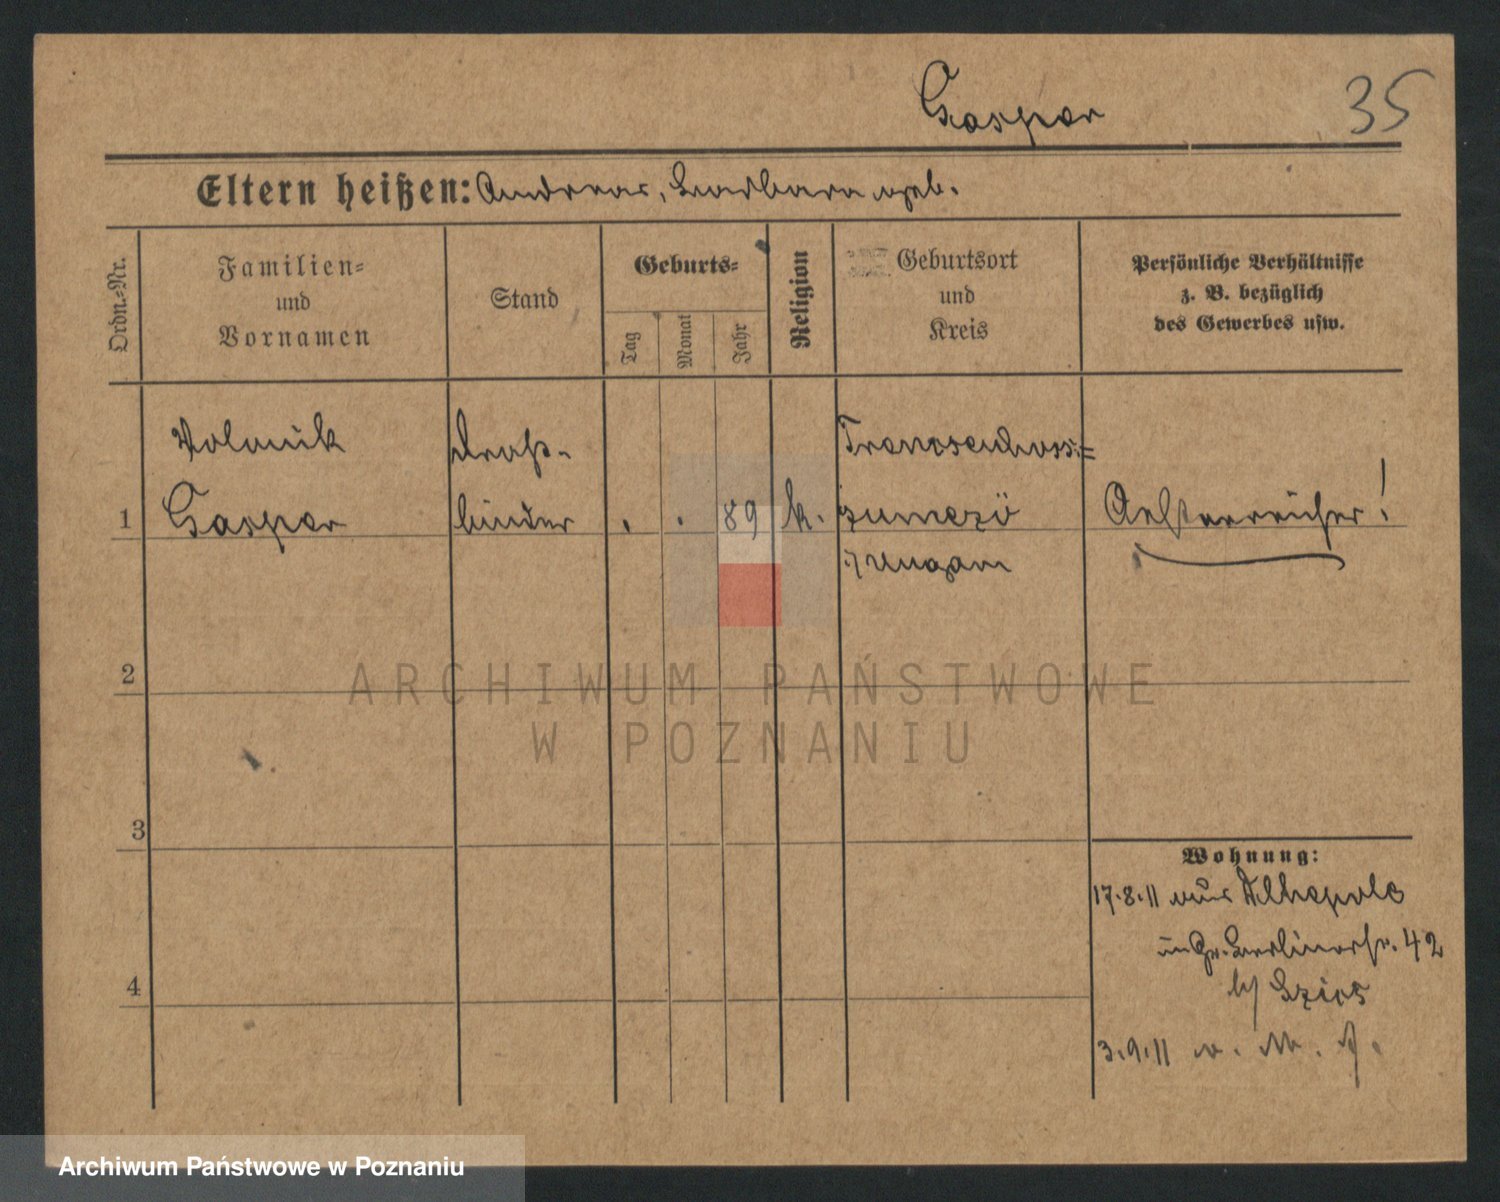 Gaspar
35
Eltern heißen: Andreas, Barbara geb.
Ordn.-Nr.
Familien-
und
Vornamen
Stand
Geburts-
Tag
Monat
Jahr
Religion
Geburtsort
und
Kreis
Persönliche Verhältnisse
z. B. bezüglich
des Gewerbes usw.
Gaspar
Draht-
binder
1
. . 89 k.
i/ Ungarn
Oesterreicher!
2
3
4
Wohnung:
17.8.11 aus
in Gr. Berlinerstr. 42
b/
3.9.11 n. A.
ARCHIWUM PAŃSTWOWE
W POZNANIU
Archiwum Państwowe w Poznaniu